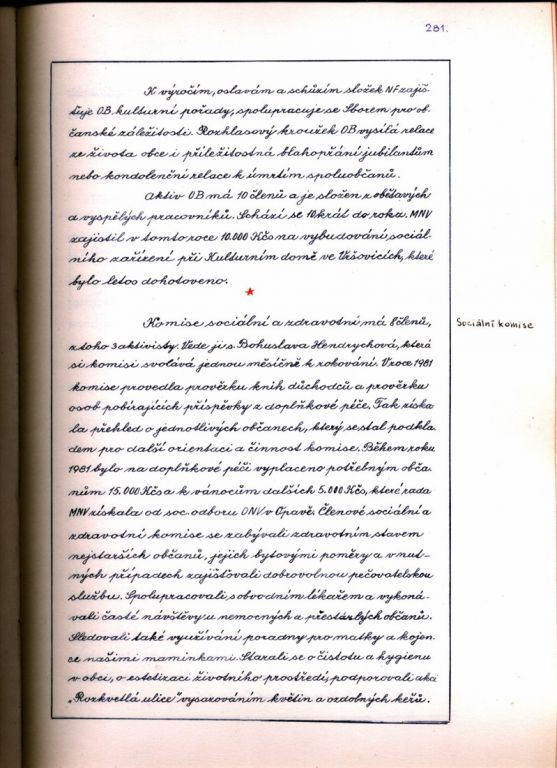 281.
K výročím, oslavám a schůzím složek NF zajiš-
ťuje O.B. kulturní pořady, spolupracuje se Sborem pro ob-
čanské záležitosti. Rozhlasový kroužek OB vysílá relace
ze života obce i příležitostná blahopřání jubilantům
nebo kondolenční relace k úmrtím spoluobčanů.
Aktiv O.B má 10 členů a je složen z obětavých
a vyspělých pracovníků. Schází se 10krát do roka. MNV
zajistil v tomto roce 10.000 Kčs na vybudování sociál-
ního zařízení při Kulturním domě ve Vršovicích, které
bylo letos dohotoveno.
Komise sociální a zdravotní má 8 členů,
Sociální komise
z toho 3 aktivisty. Vede ji s. Bohuslava Hendrychová, která
si komisi svolává jednou měsíčně k rokování. V roce 1981
komise provedla prověrku knih důchodců a prověrku
osob pobírajících příspěvky z doplňkové péče. Tak získa
la přehled o jednotlivých občanech, který se stal podkla
dem pro další orientaci a činnost komise. Během roku
1981 bylo na doplňkové péči vyplaceno potřebným obča
nům 15.000 Kčs a k vánocům dalších 5.000 Kčs, které rada
MNV získala od soc. odboru ONV v Opavě. Členové sociální a
zdravotní komise se zabývali zdravotním stavem
nejstarších občanů, jejich bytovými poměry a v nut-
ných případech zajišťovali dobrovolnou pečovatelskou
službu. Spolupracovali s obvodním lékařem a vykoná-
vali časté návštěvy u nemocných a přestárlých občanů.
Sledovali také využívání poradny pro matky a kojen-
ce našimi maminkami. Starali se o čistotu a hygienu
v obci, o estetizaci životního prostředí, podporovali akci
„Rozkvetlá ulice" vysazováním květin a ozdobných keřů.